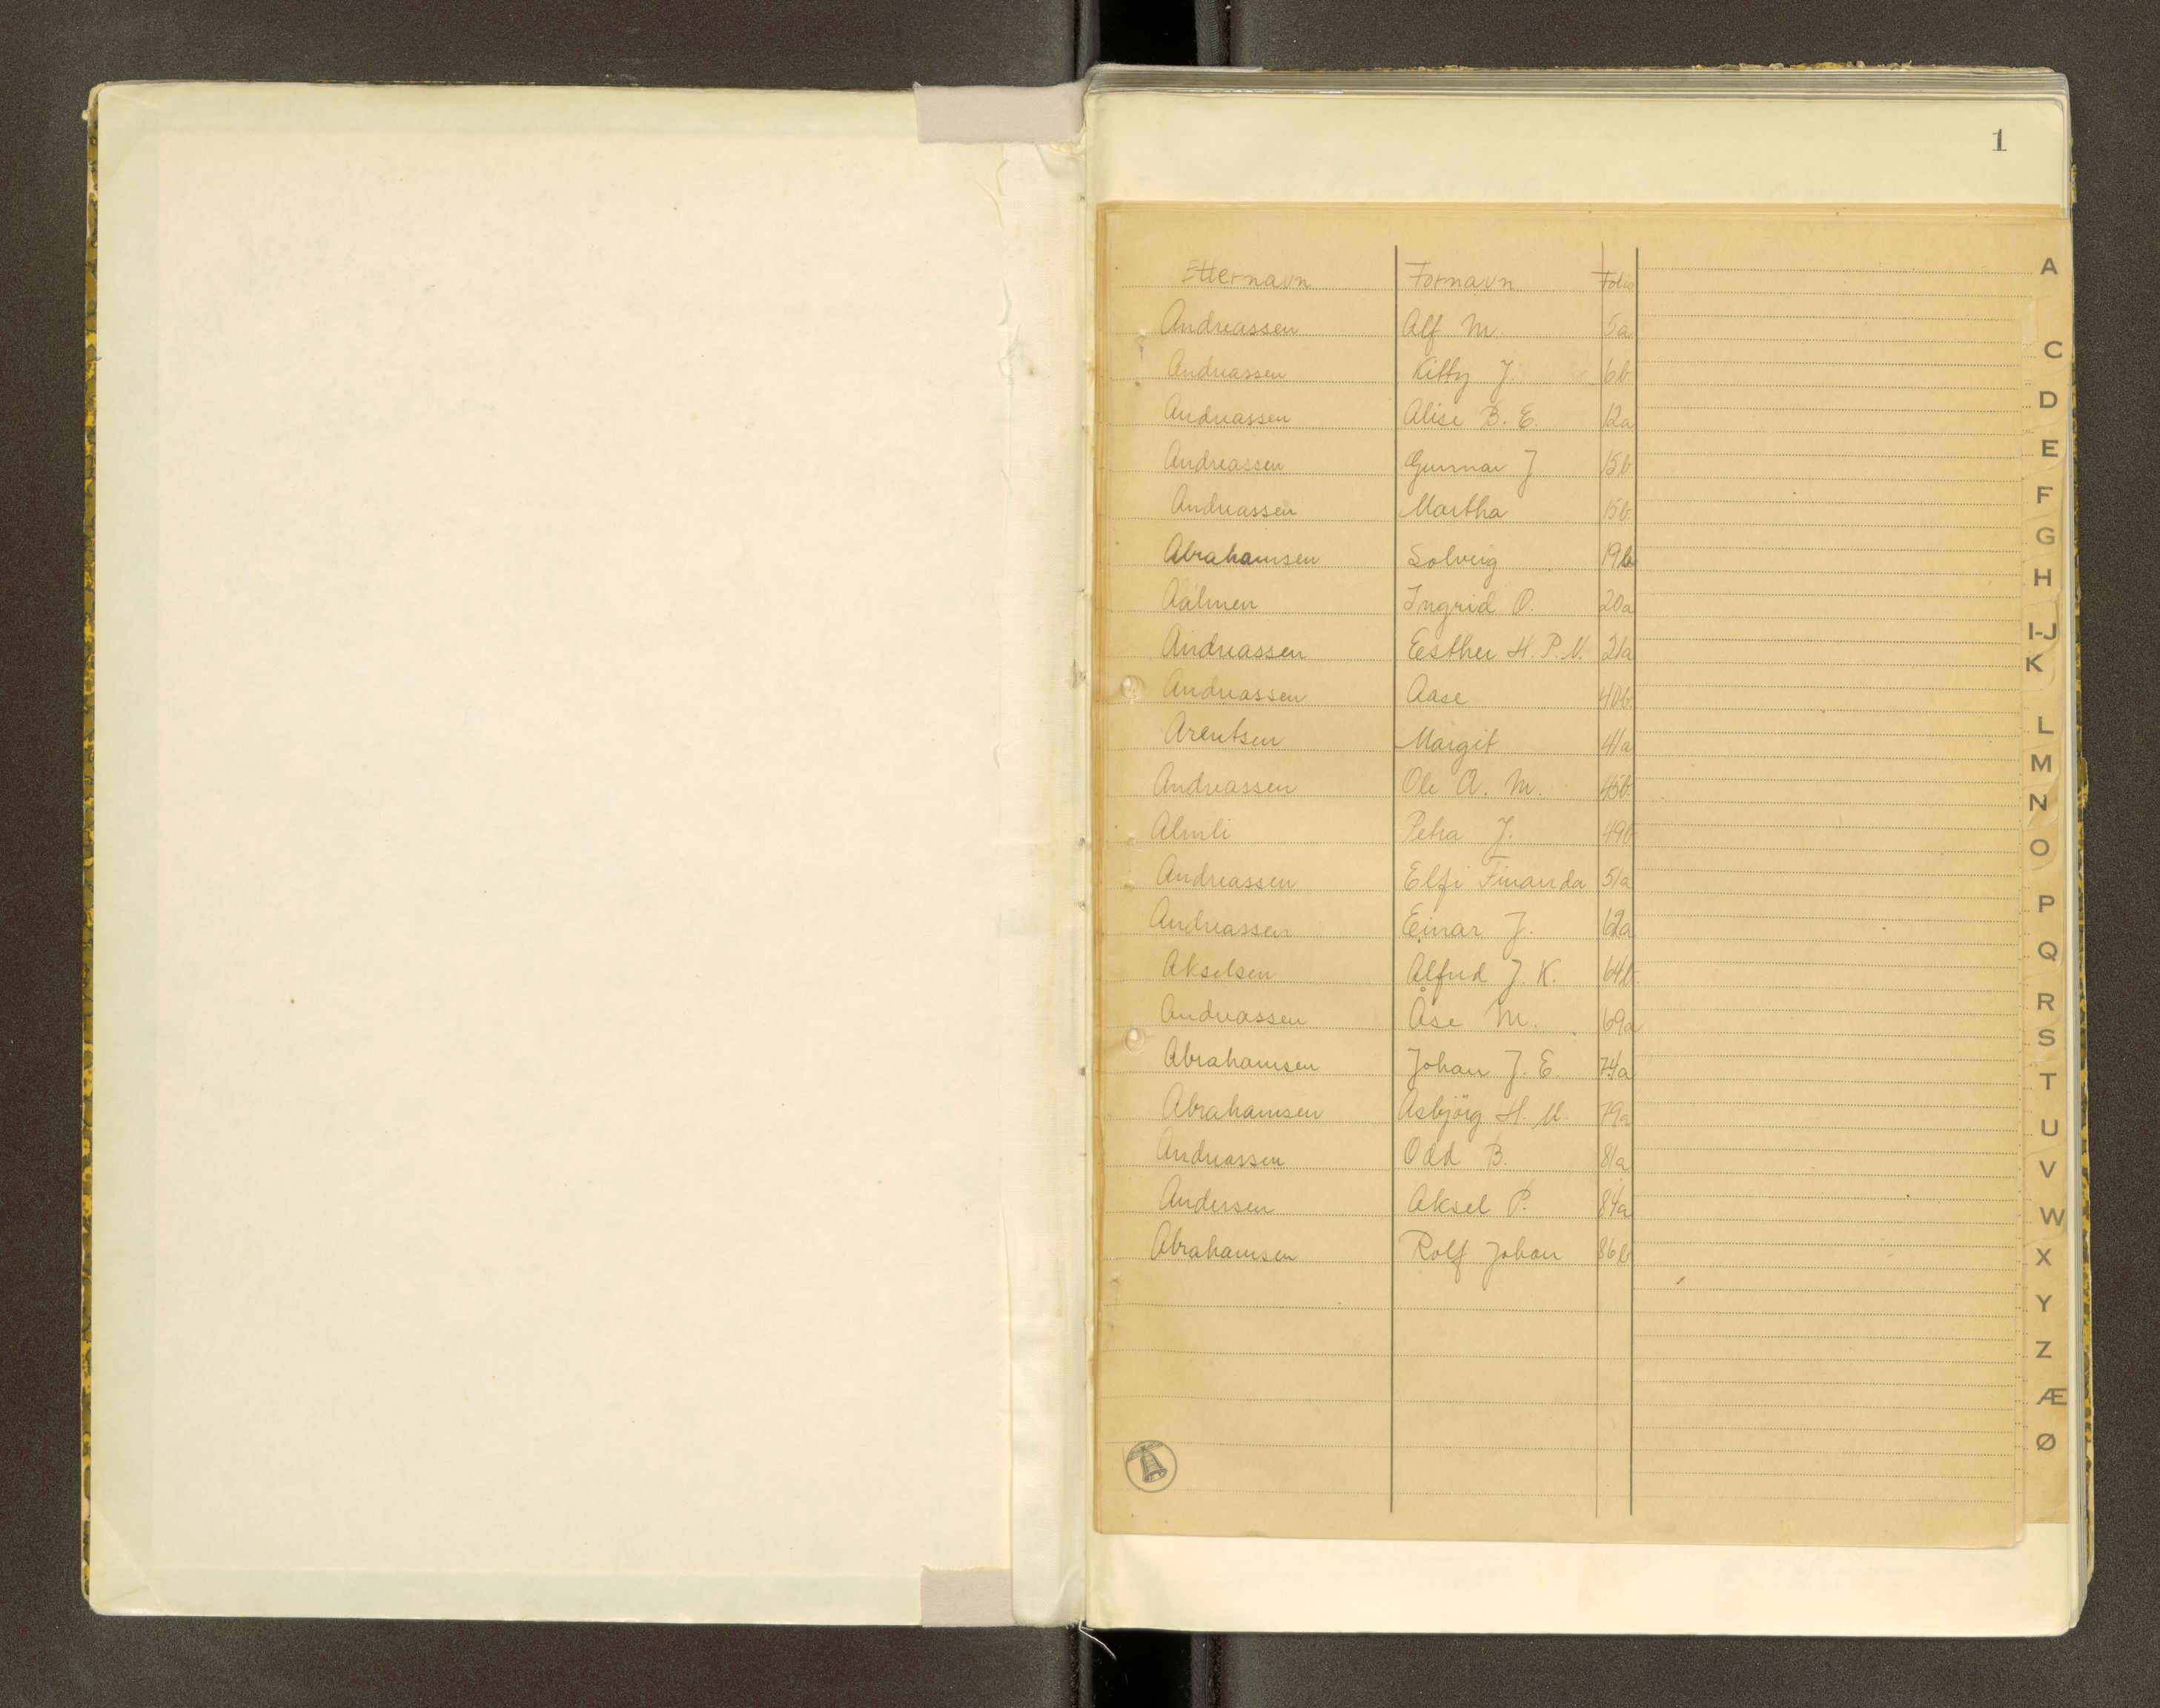 1
Etternavn Fornavn Folio
Andreassen Alf M. 5a
Andreassen Kitty J. 6b
Andreassen Alise B. E. 12a
Andreassen Gunnar J. 15b
Andreassen Martha 15b
Abrahamsen Solveig 19b
Aalmen Ingrid O. 20a
Andreassen Esther H. P. N. 21a
Andreassen Aase 40b
Arentsen Margit 41a
Andreassen Ole A. M. 45b
Almli Petra J. 49b
Andreassen Elfi Finanda 51a
Andreassen Einar J. 62a
Akselsen Alfred J. K. 64b
Andreassen Åse M. 69a
Abrahamsen Johan J. E. 74a
Abrahamsen Asbjörg H. M. 79a
Andreassen Odd B. 81a
Andersen Aksel P. 84a
Abrahamsen Rolf Johan 86b
A
C
D
E
F
G
H
I-J
K
L
M
N
O
P
Q
R
S
T
U
V
W
X
Y
Z
Æ
Ø